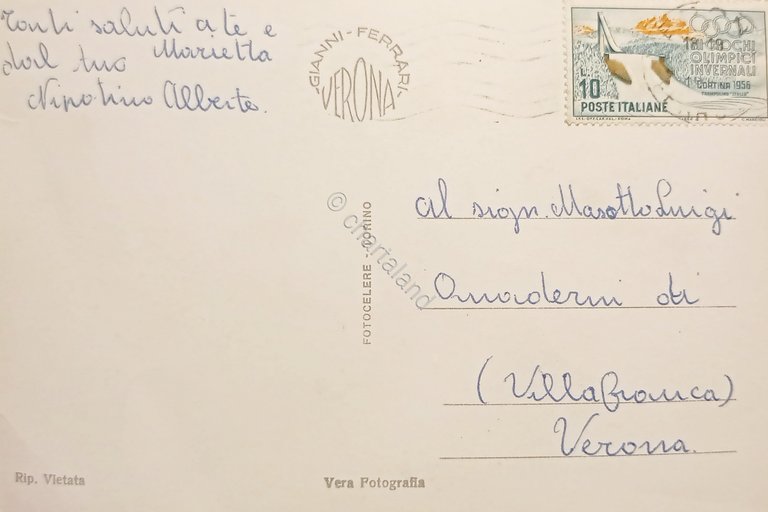 Tanti saluti a te e
Marietta
dal tuo
Nipotino Alberto.
GIANNI-FERRARI-
VERONA
GIOCHI
OLIMPICI
INVERNALI
CORTINA 1956
TRAMPOLINO "ITALIA"
L. 10
POSTE ITALIANE
IST. POL. STATO. ROMA
Al sign. Masotto Luigi
Quaderni di
(Villafranca)
Verona.
© chartaland
FOTOCELERE - TORINO
Rip. Vietata
Vera Fotografia